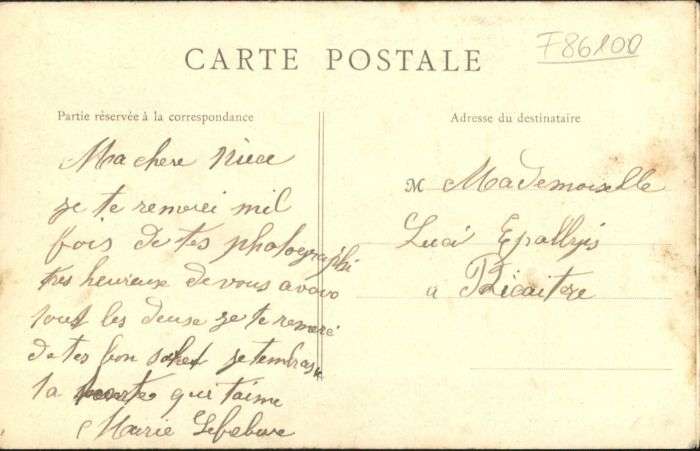 F86100
CARTE POSTALE
Partie réservée à la correspondance
Adresse du destinataire
Ma chere niece
je te remerci mil
fois de tes photographi
tres heureux de vous avoir
tous les deuse je te remerci
de tes bon je tembras
ta qui t'aime
Marie Lefebvre
M Mademoiselle
Luci
a